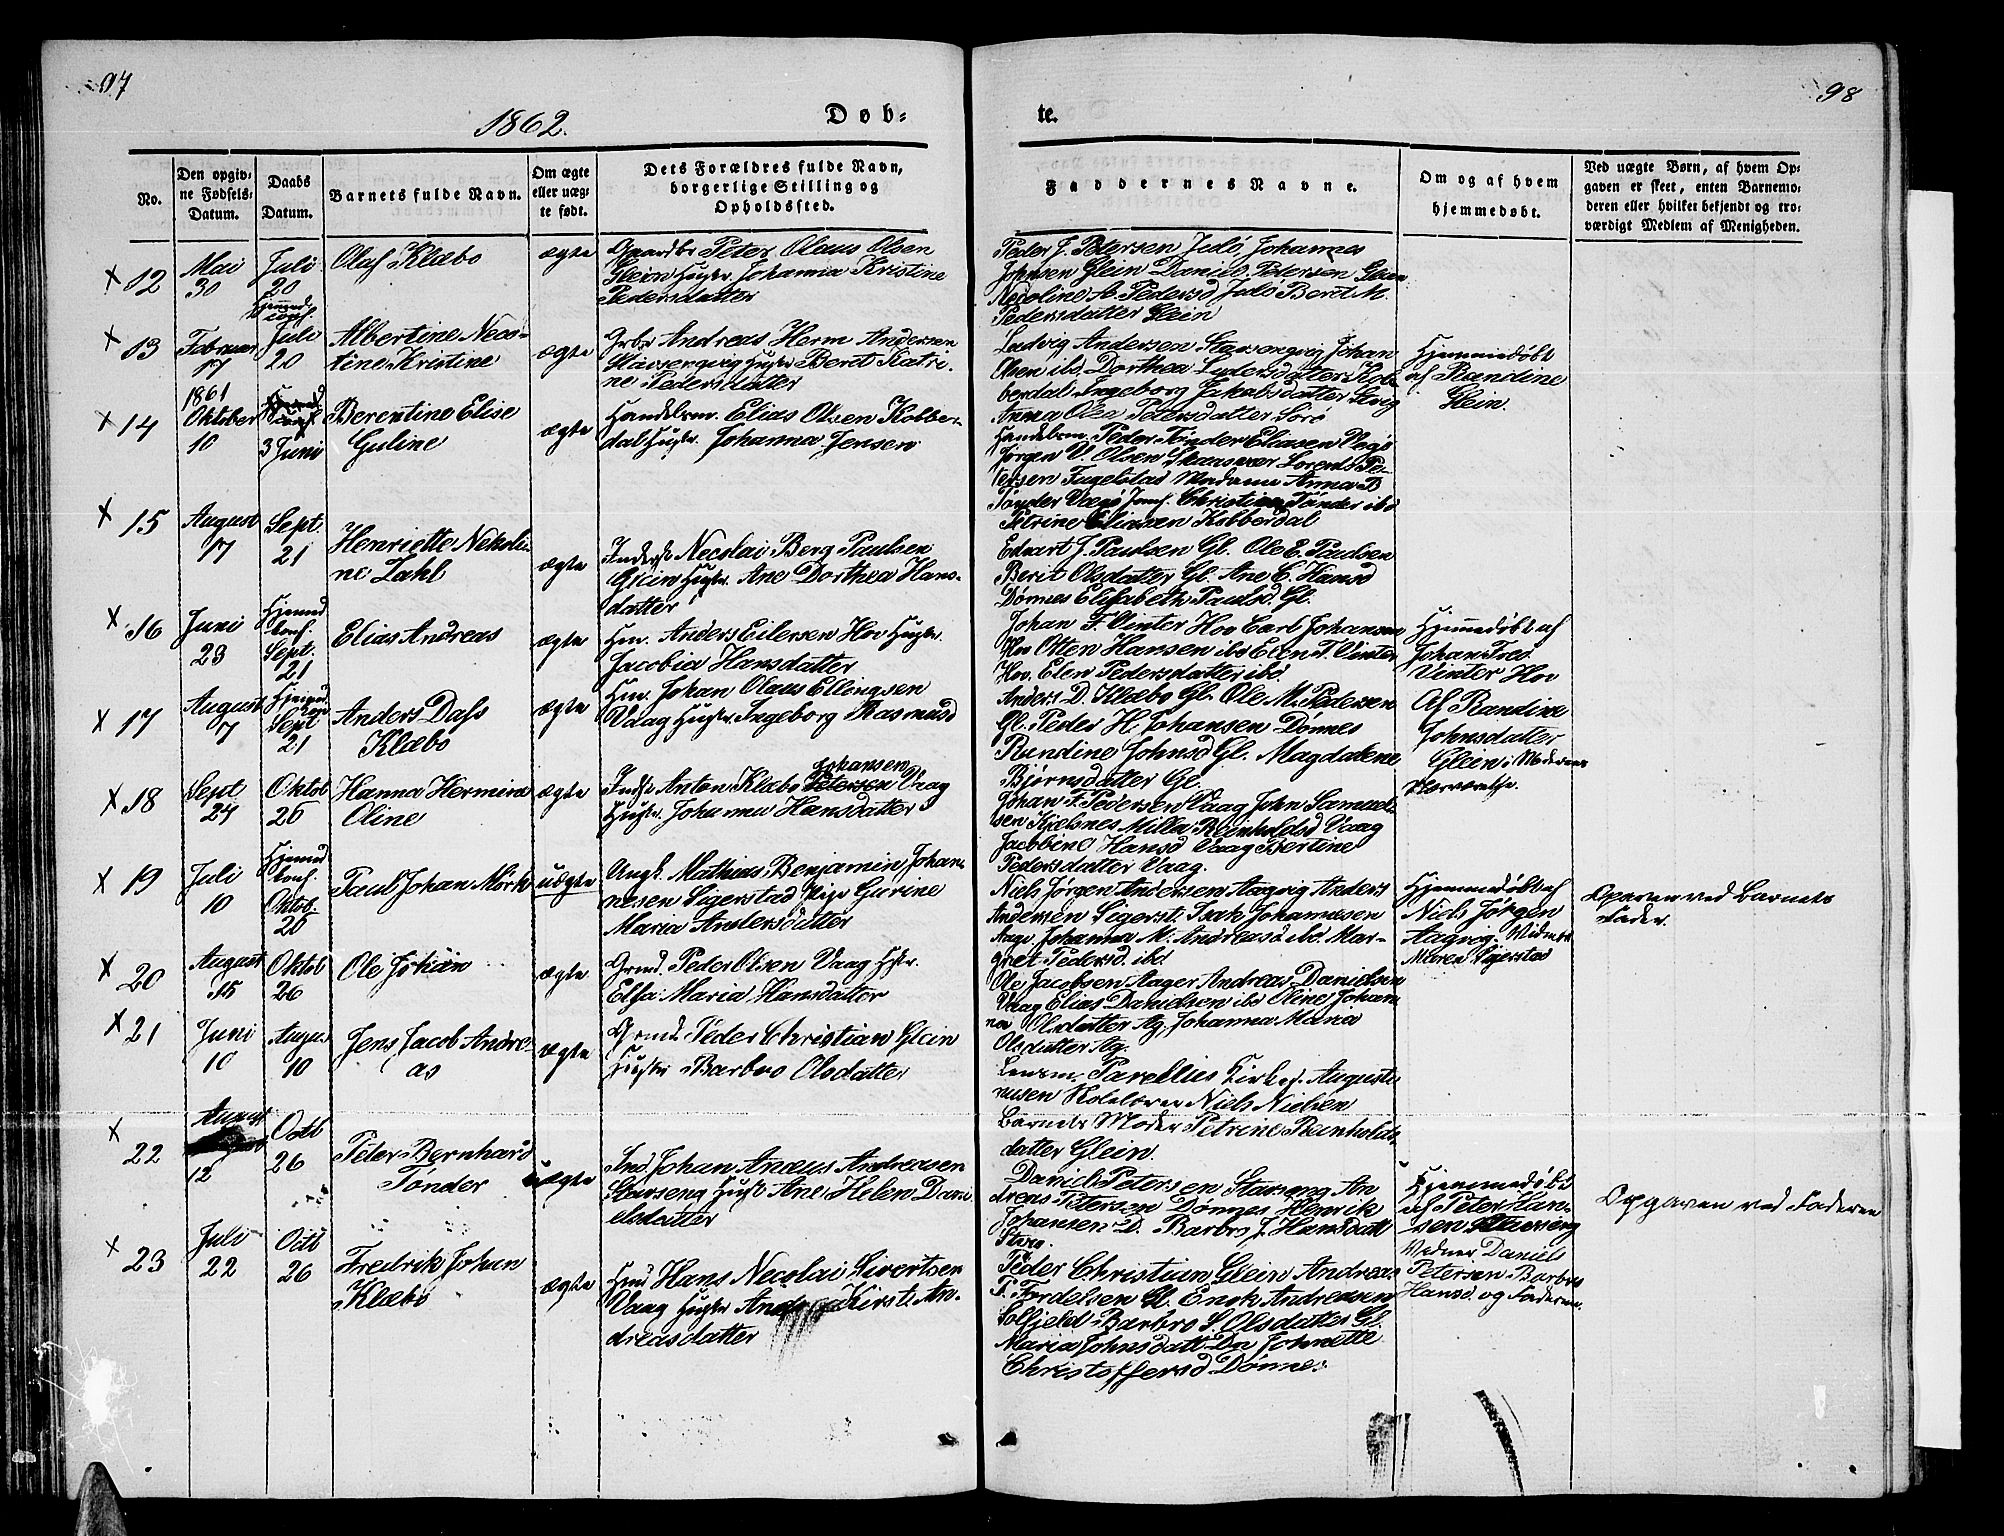 97
98
1862.
Døb-
te.
No.
Den opgiv-
ne Fødsels-
Datum.
Daabs
Datum.
Barnets fulde Navn.
Om ægte
eller uæg-
te født.
Dets Forældres fulde Navn,
borgerlige Stilling og
Opholdssted.
Faddernes Navne.
Om og af hvem
hjemmedøbt.
Ved uægte Børn, af hvem Op-
gaven er skeet, enten Barnemo-
deren eller hvilket bekjendt og tro-
værdigt Medlem af Menigheden.
x 12
Mai
30
Juli
20
Olaf Klæbo
ægte
Gaardbr Peter Olaus Olsen
Glein Hustr. Johanna Kristine
Pedersdatter
Peder J. Petersen Johannes
Johnsen Glein Daniel Petersen Glein
Necoline A. Pedersd Beret M.
Pedersdatter Glein
x 13
Februar
17
Hjemmed
conf.
Juli
20
Albertine Neco-
line Kristine
ægte
Grbr Andreas Herm Andersen
Stavsengvig Hustr Beret Katri-
ne Pedersdatter
Ludvig Andersen Stavsengvig Johan
Olsen ibd Dorthea Lydersdatter Kob-
berdal Ingeborg Jakobsdatter Stvig
Anna Olea Petersdatter Sørø
Hjemmedøbt
af Randine
Glein.
x 14
1861
Oktober
10
3 Juni
Berentine Elise
Guline
ægte
Handelsm. Elias Olsen Kobber-
dal Hustr. Johanna Jensen
Handelsm. Peder Tønder Eliasen Vegø
Jørgen V. Olsen Skaasvær Lorents Pe-
tersen Fugelstad Madame Anna B
Tønder Vægø Jomf. Christiane Tønder ibd
Petrine Eliasen Kobberdal
x 15
August
17
Sept.
21
Henriette Nekoli-
ne Zahl
ægte
Inderst Necolai Berg Paulsen
Glein Hustr. Ane Dorthea Hans-
datter
Edvart J. Paulsen Gl. Ole E. Paulsen
Berit Olsdatter Gl. Ane C. Hansd
Dønnes Elisabeth Paulsd. Gl.
x 16
Juni
23
Hjemmd
conf.
Sept.
21
Elias Andreas
ægte
Hm. Anders Eilersen Hov Hustr.
Jacobia Hansdatter
Johan F. Vinter Hov Carl Johansen
Hov Otten Hansen ibd Elen T. Vinter
Hov. Elen Pedersdatter ibd.
Hjemmedøbt af
Johan Fred
Vinter Hov
x 17
August
7
Hjemmd
conf
Sept
21
Anders Dass
Klæbo
ægte
Hm. Johan Olaus Ellingsen
Vaag Hustr Ingeborg Rasmusd
Anders D. Klæbo Gl. Ole M. Pedersen
Gl. Peder H. Johansen Dønnes
Randine Johnsd Gl. Magdalene
Bjørnsdatter Gl.
Af Randine
Johnsdatter
Glein i Moderens
Nærværelse.
x 18
Sept
24
Oktob
26
Hanna Hermine
Oline
ægte
Johansen
Indst Anton Klæbo Petersen Vaag
Hustr. Johanna Hansdatter
Johan F. Pedersen Vaag John Samuel-
sen Kjelsnes Milla Reinholdsd Vaag
Jacobine Hansd Vaag Bertine
Pedersdatter Vaag.
x 19
Juli
10
Hjemmd
conf.
Oktob.
26
Paul Johan Mørk
uægte
Ungk. Mathias Benjamin Johan-
nesen Sigerstad Pige Gurine
Maria Andersdatter
Niels Jørgen Andersen Aagvig Anders
Andersen Sigerst. Isak Johannesen
Aagv. Johanna M. Andreasd ibd. Mar-
gret Pedersd. ibd
Hjemmedøbt af
Niels Jørgen
Aagvig. Vidner
Maren Sigerstad
Opgaven ved Barnets
Fader.
x 20
August
15
Oktob
26
Ole Johan
ægte
Grmd. Peder Olsen Vaag Hstr.
Elsa Maria Hansdatter
Ole Jacobsen Aager Andreas Danielsen
Vaag Elias Danielsen ibd Oline Johan-
na Olsdatter Ag. Johanna Maria
Olsdatter Ag.
x 21
Juni
10
Augu
10
Jens Jacob Andre-
as
ægte
Grmd. Peder Christian Glein
Hustr Barbro Olsdatter
Lensm. Parellius Kirkes. Augusti-
nusen Skolelærer Niels Nielsen
Barnets Moder Petrine Reinholds-
datter Glein.
x 22
August
12
Octb
26
Peter Bernhard
Tønder
uægte
Ind Johan Anæus Andreasen
Stavseng Hust Ane Helen Dani
elsdatter
Daniel Petersen Stavseng An
dreas Petersen Dønnes Henrik
Johansen D. Barbro J. Hansdatt
Stavs.
Hjemmedøbt
af Peter Han-
sen Stavseng
Vidner Daniel
Petersen Barbro
Hansd. og Faderen
Opgaven ved Faderen
x 23
Juli
22
Octb
26
Fredrik Johan
Klæbo
ægte
Hmd Hans Necolai Sivertsen
Vaag Hustr Kirst. An-
dreasdatter
Peder Christian Glein Andreas
T. Fordelsen Gl. Enok Andreasen
Solfjeld Barbro S. Olsdatter Gl.
Maria Johnsdatt Do Johnette
Christoffersd Dønnes